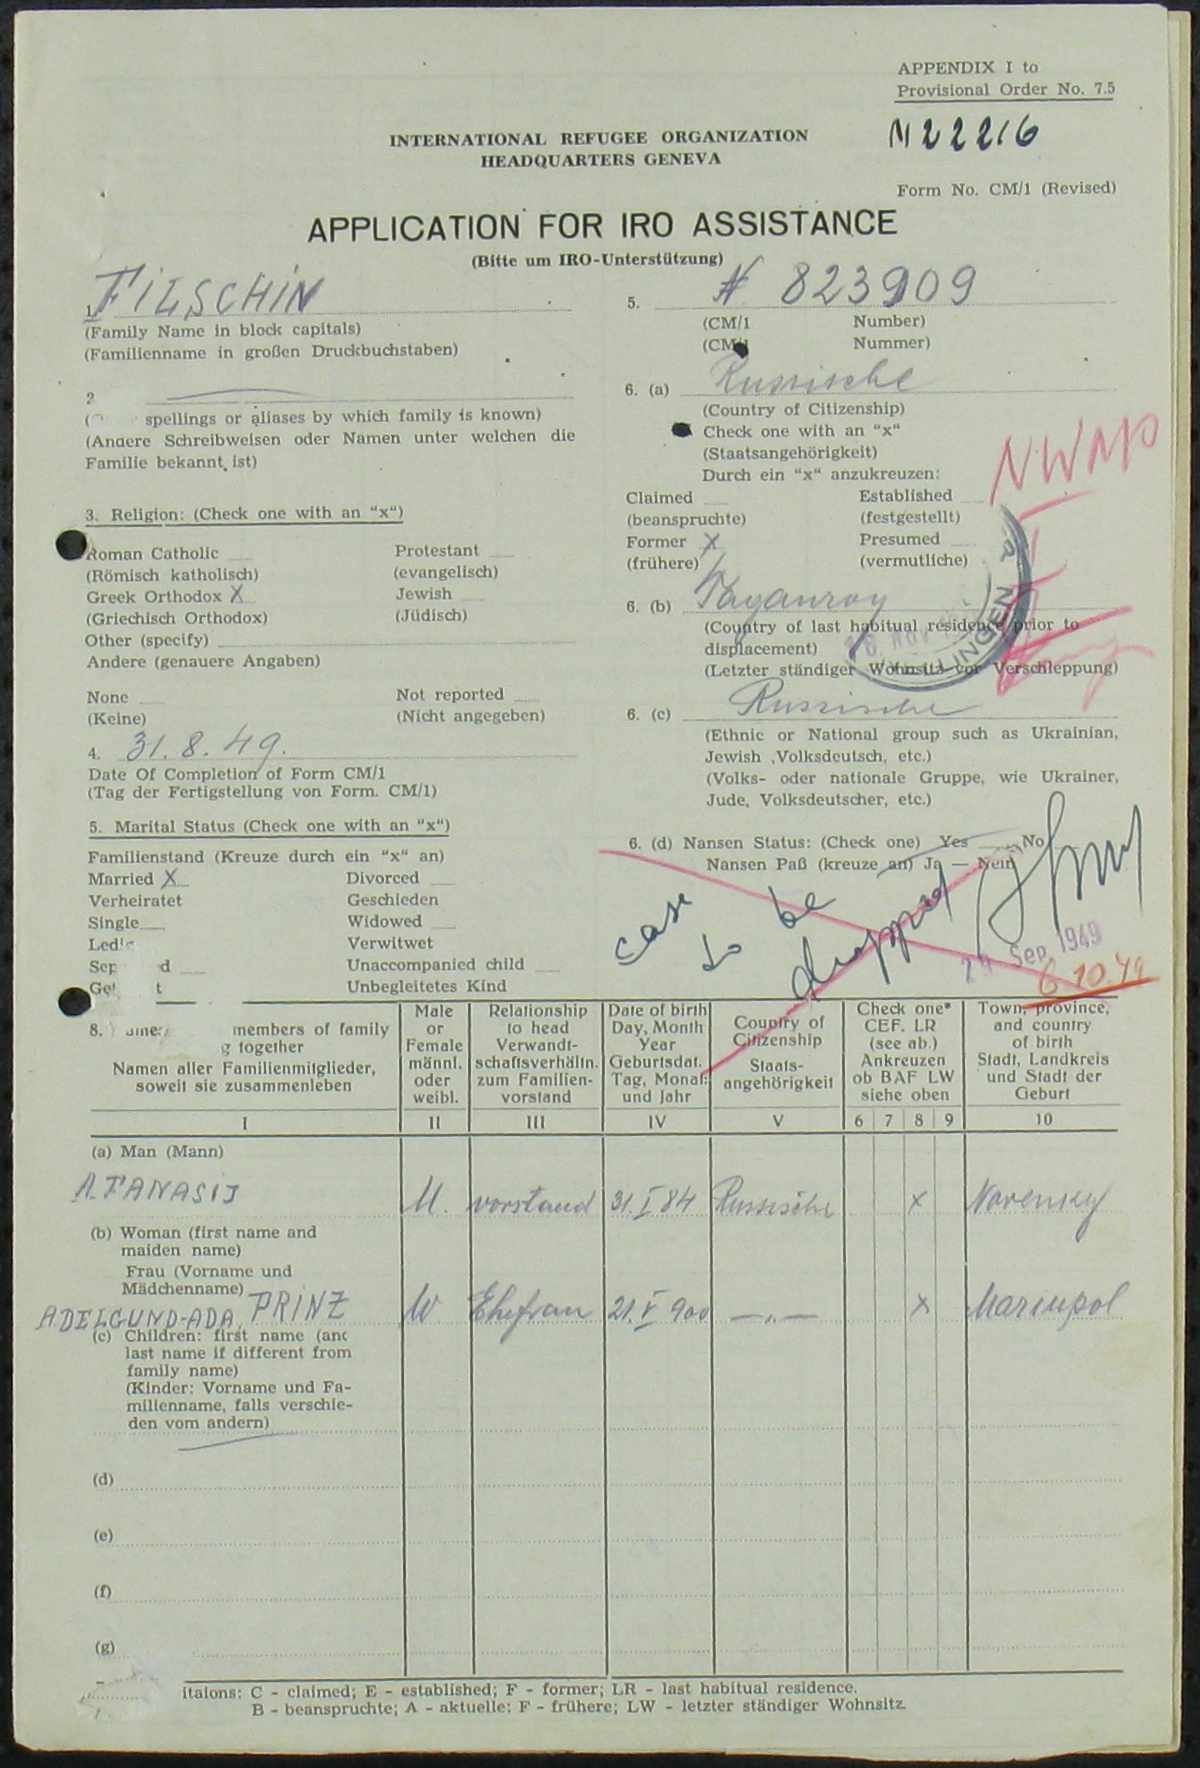 APPENDIX I to
Provisional Order No. 7.5
M22216
INTERNATIONAL REFUGEE ORGANIZATION
HEADQUARTERS GENEVA
Form No. CM/1 (Revised)
APPLICATION FOR IRO ASSISTANCE
(Bitte um IRO-Unterstützung)
1. FILSCHIN
(Family Name in block capitals)
(Familienname in großen Druckbuchstaben)
2
spellings or aliases by which family is known)
(Andere Schreibweisen oder Namen unter welchen die
Familie bekannt ist)
3. Religion: (Check one with an "x")
Roman Catholic
(Römisch katholisch)
Greek Orthodox X
(Griechisch Orthodox)
Other (specify)
Andere (genauere Angaben)
None
(Keine)
Protestant
(evangelisch)
Jewish
(Jüdisch)
Not reported
(Nicht angegeben)
4. 31.8.49.
Date Of Completion of Form CM/1
(Tag der Fertigstellung von Form. CM/1)
5. Marital Status (Check one with an "x")
Familienstand (Kreuze durch ein "x" an)
Married X
Verheiratet
Single
Divorced
Geschieden
Widowed
Verwitwet
Unaccompanied child
Unbegleitetes Kind
5. N 823909
(CM/1 Number)
(CM/1 Nummer)
6. (a) Russische
(Country of Citizenship)
Check one with an "x"
(Staatsangehörigkeit)
Durch ein "x" anzukreuzen:
Claimed
(beanspruchte)
Former X
(frühere)
Established
(festgestellt)
Presumed
(vermutliche)
NWMD
6. (b) Taganrog
(Country of last habitual residence prior to
displacement)
(Letzter ständiger Wohnsitz vor Verschleppung)
LINGEN
6. (c) Russische
(Ethnic or National group such as Ukrainian,
Jewish ,Volksdeutsch, etc.)
(Volks- oder nationale Gruppe, wie Ukrainer,
Jude, Volksdeutscher, etc.)
6. (d) Nansen Status: (Check one) Yes No
Nansen Paß (kreuze an) Ja — Nein
case to be dropped
Sep 1949
6 10.49
8. members of family
together
Namen aller Familienmitglieder,
soweit sie zusammenleben
I
Male
or
Female
männl.
oder
weibl.
II
Relationship
to head
Verwandt-
schaftsverhältn.
zum Familien-
vorstand
III
Date of birth
Day, Month
Year
Geburtsdat.
Tag, Monat
und Jahr
IV
Country of
Citizenship
Staats-
angehörigkeit
V
Check one*
CEF. LR
(see ab.)
Ankreuzen
ob BAF LW
siehe oben
6 7 8 9
Town, province,
and country
of birth
Stadt, Landkreis
und Stadt der
Geburt
10
(a) Man (Mann)
AFANASIJ M. vorstand 31. I 84 Russische x
(b) Woman (first name and
maiden name)
Frau (Vorname und
Mädchenname)
ADELGUND-ADA PRINZ W Ehefrau 21. V 900 —"— x Mariupol
(c) Children: first name (and
last name if different from
family name)
(Kinder: Vorname und Fa-
milienname, falls verschie-
den vom andern)
(d)
(e)
(f)
(g)
itaions: C - claimed; E - established; F - former; LR - last habitual residence.
B - beanspruchte; A - aktuelle; F - frühere; LW - letzter ständiger Wohnsitz